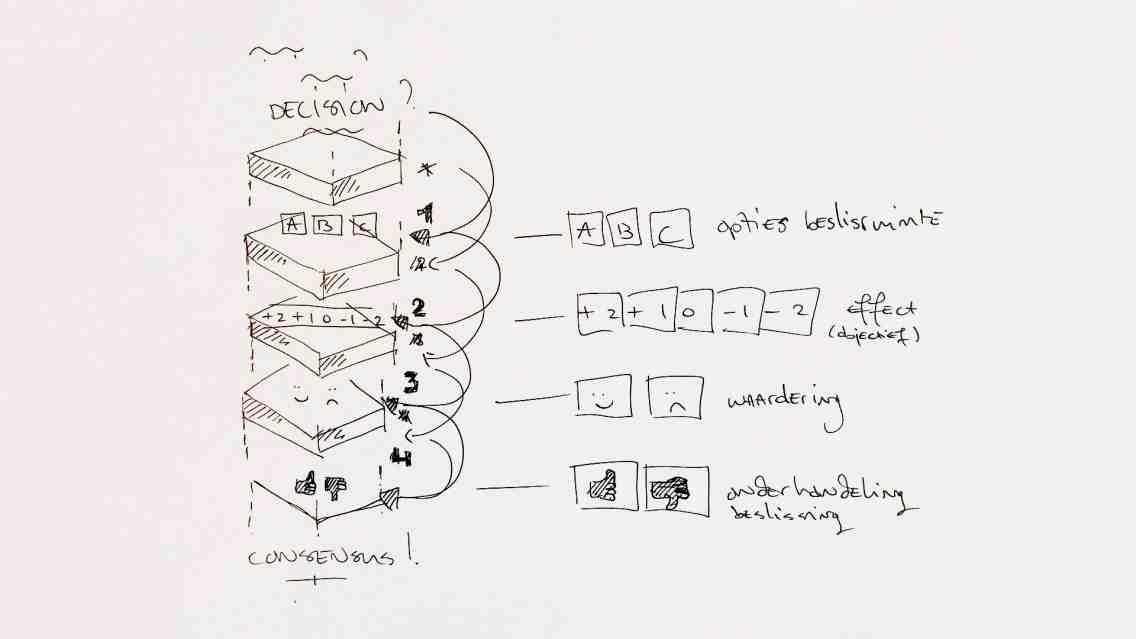 DECISION ?
*
1
A B C
A B C opties beslisruimte
2
+2 +1 0 -1 -2
+2 +1 0 -1 -2 effect
(objectief)
3
waardering
4
onderhandeling
beslissing
CONSENSUS!